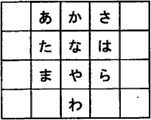 あ か さ
た な は
ま や ら
わ